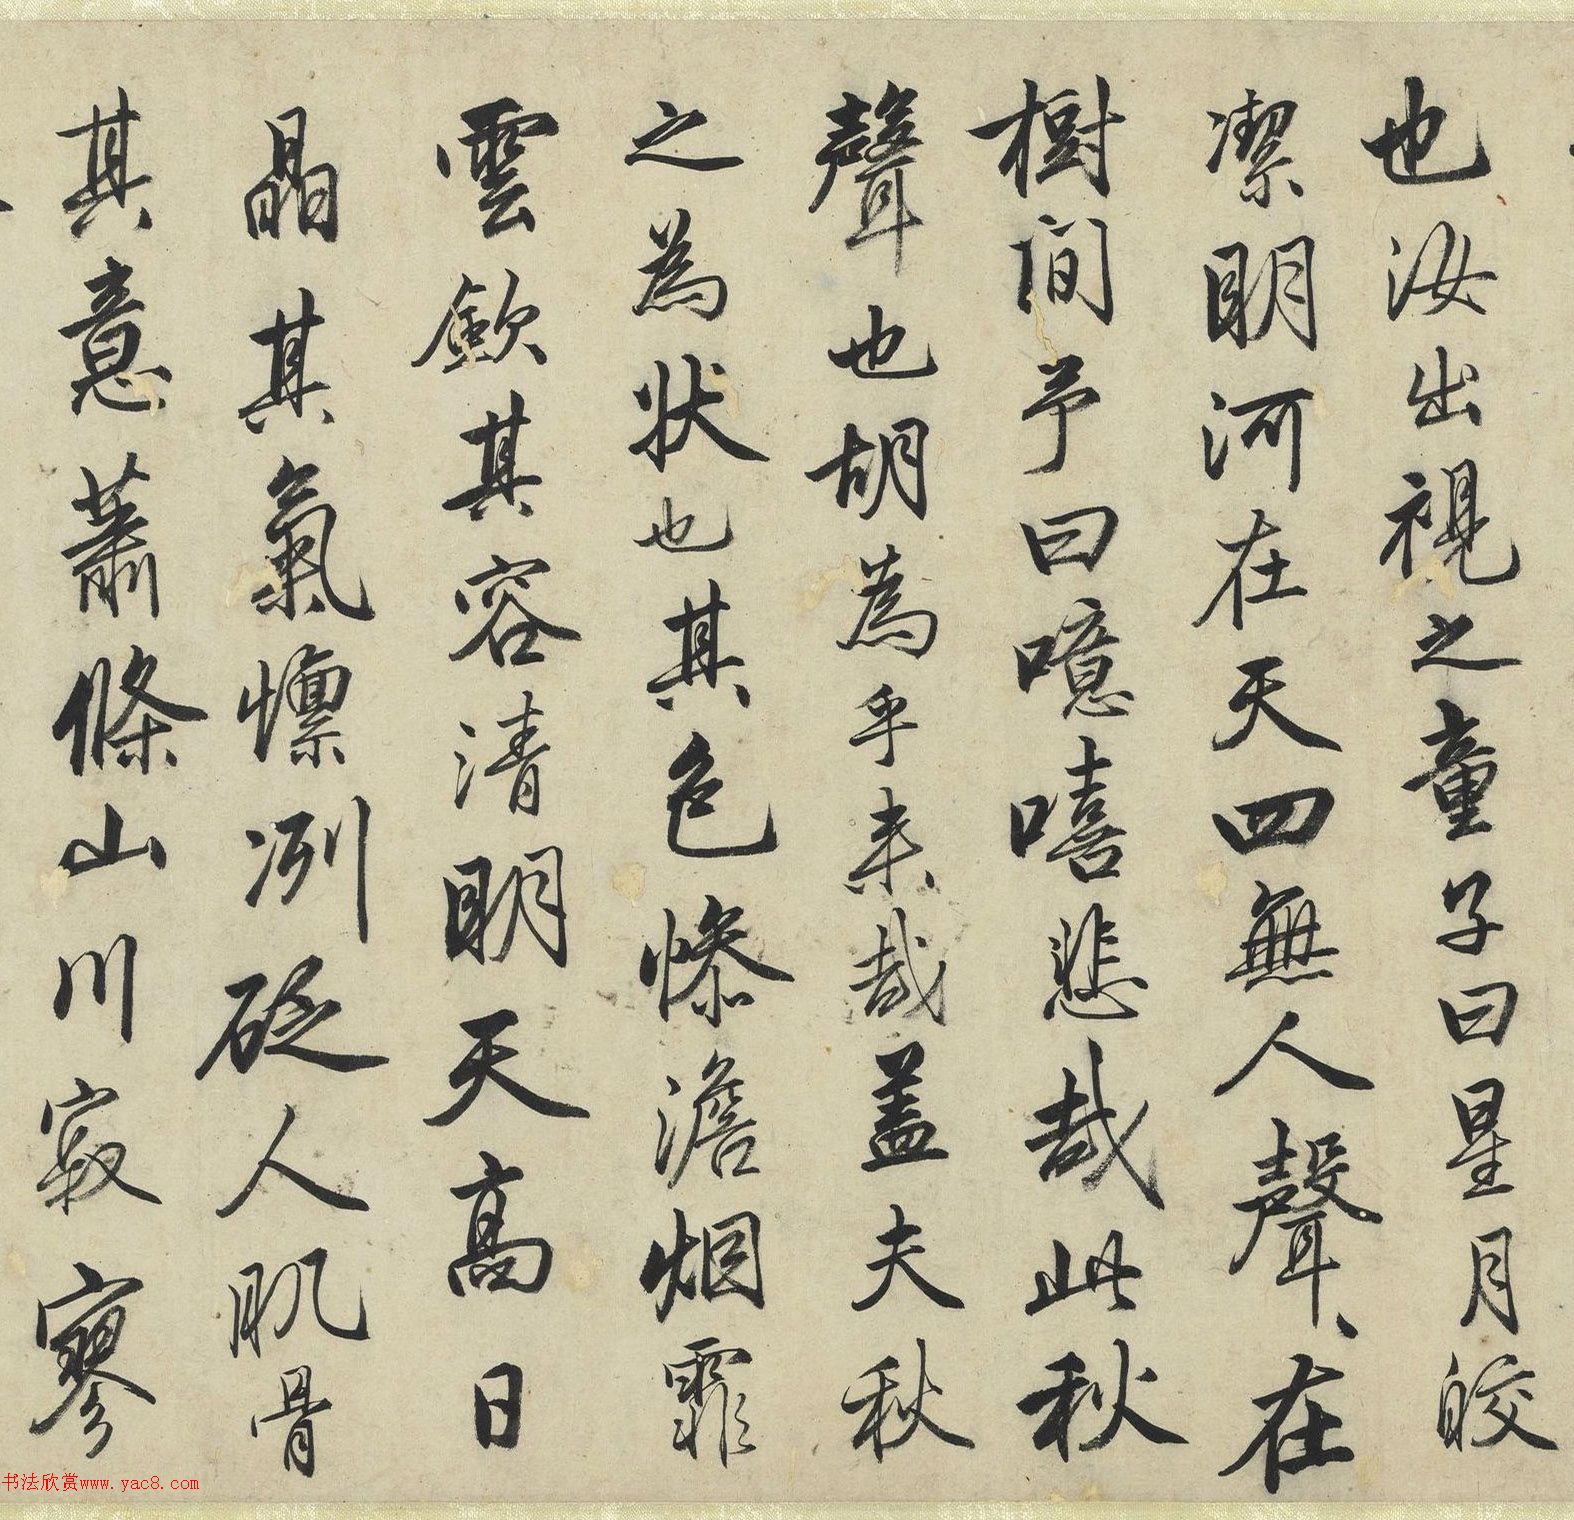 也汝出視之童子曰星月皎
潔明河在天四無人聲聲在
樹間予曰噫嘻悲哉此秋
聲也胡為乎来哉盖夫秋
之為狀也其色慘澹烟霏
雲歛其容清明天高日
晶其氣凛冽砭人肌骨
其意蕭條山川寂寥
书法欣赏www.yac8.com